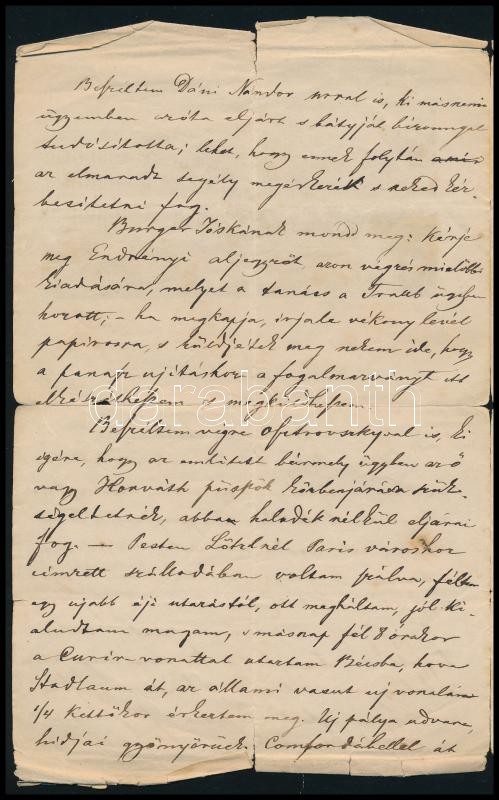 Beszéltem Dáni Nándor urral is, ki másnemü
ügyemben azóta eljárt s bátyját bizonnyal
tudósitotta; lehet, hogy ennek folytán
az elmaradt segély megérkezik s neked kéz-
besitetni fog.
Burger Jóskának mondd meg: Kérje
meg Endrényi aljegyzőt, azon végzés mielőbbi
kiadására, melyet a tanács a Traub ügyben
hozott; – ha megkapja, irja le vékony levél
papirosra, s küldjétek meg nekem ide, hogy
a panasz ujitáskor a fogalmazványt itt
elkészithessem s megküldhessem.
Beszéltem végre Osztrovszkyval is, ki
igérte, hogy az emlitett bármely ügyben az ő
vagy Horváth püspök közbenjárása szük-
ségeltetnék, abban haladék nélkül eljárni
fog. — Pesten Lötzlnél Paris városhoz
cimzett szállodában voltam szálva, féltem
egy ujabb éji utazástól, ott megháltam, jól ki-
aludtam magam, s másnap fél 8 órakor
a Curir vonattal utaztam Bécsbe, hova
Stadlau át, az állami vasut uj vonalán
1/4 kettőkor érkeztem meg. Uj pálya udvara,
hidjai gyönyörüek. Comfortábellel át
darabanth